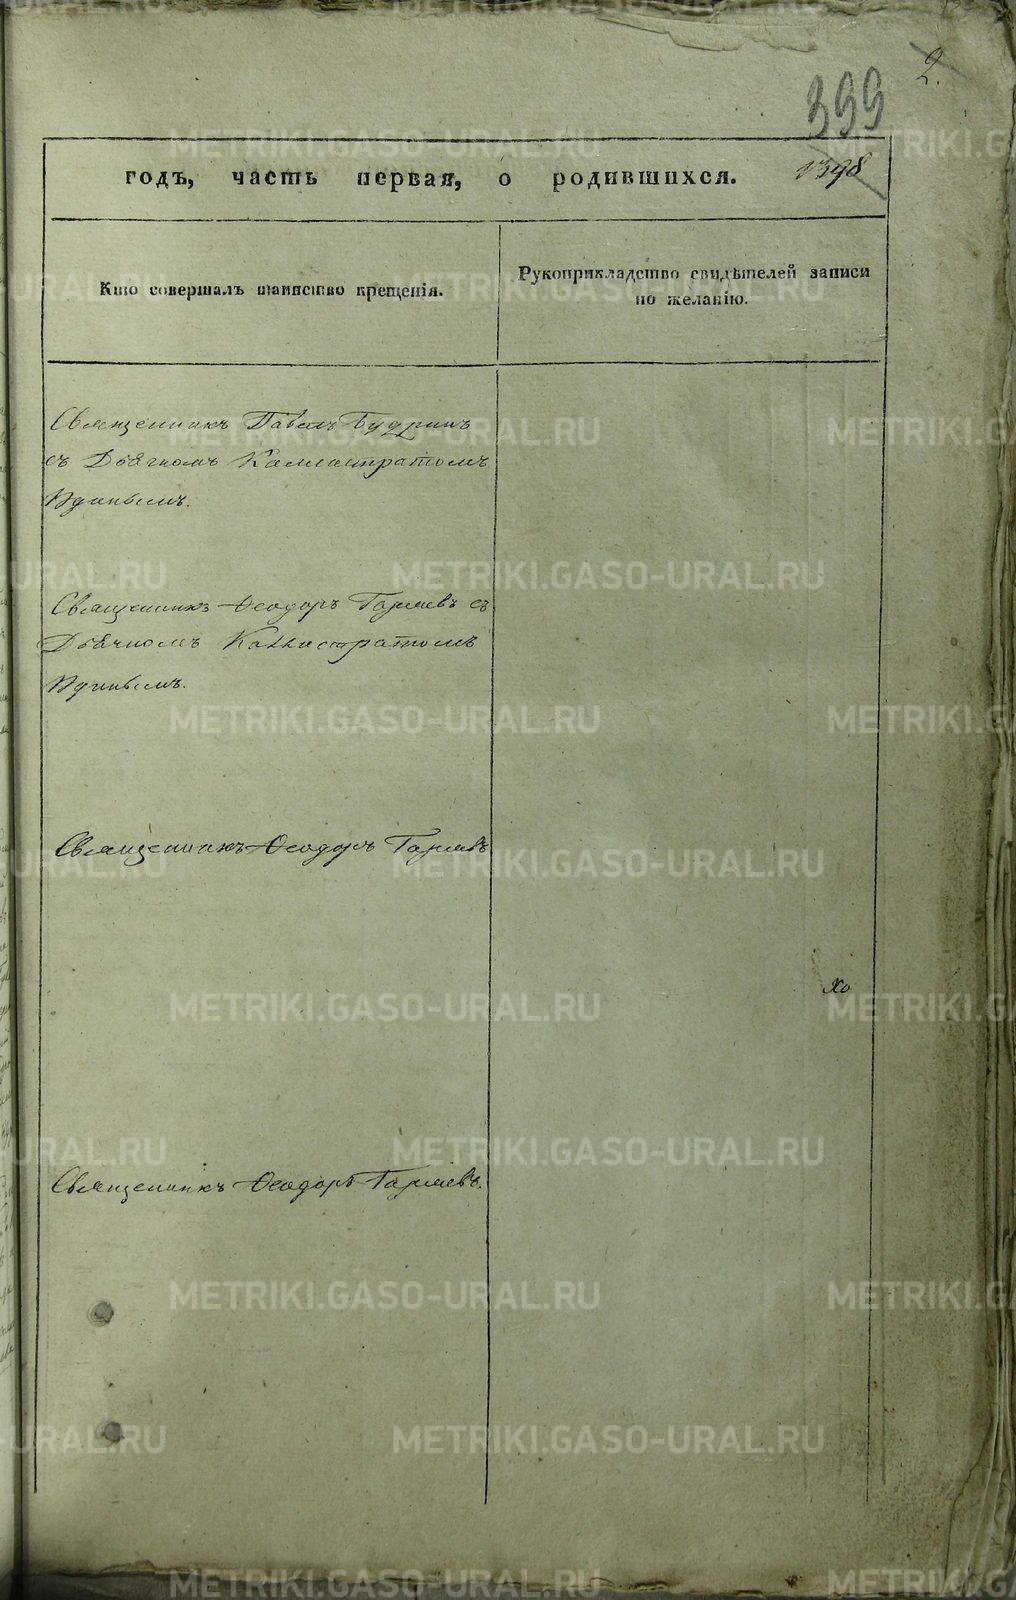 2.
399
1398
годъ, часть первая, о родившихся.
Кто совершалъ таинство крещенія.
Рукоприкладство свидѣтелей записи
по желанію.
Священникъ Павелъ Будринъ
съ Дьячкомъ Каллистратомъ
Священникъ Ѳеодоръ Гаряевъ съ
Дьячкомъ Каллистратомъ
Священникъ Ѳеодоръ Гаряевъ
хо
Священникъ Ѳеодоръ Гаряевъ.
METRIKI.GASO-URAL.RU